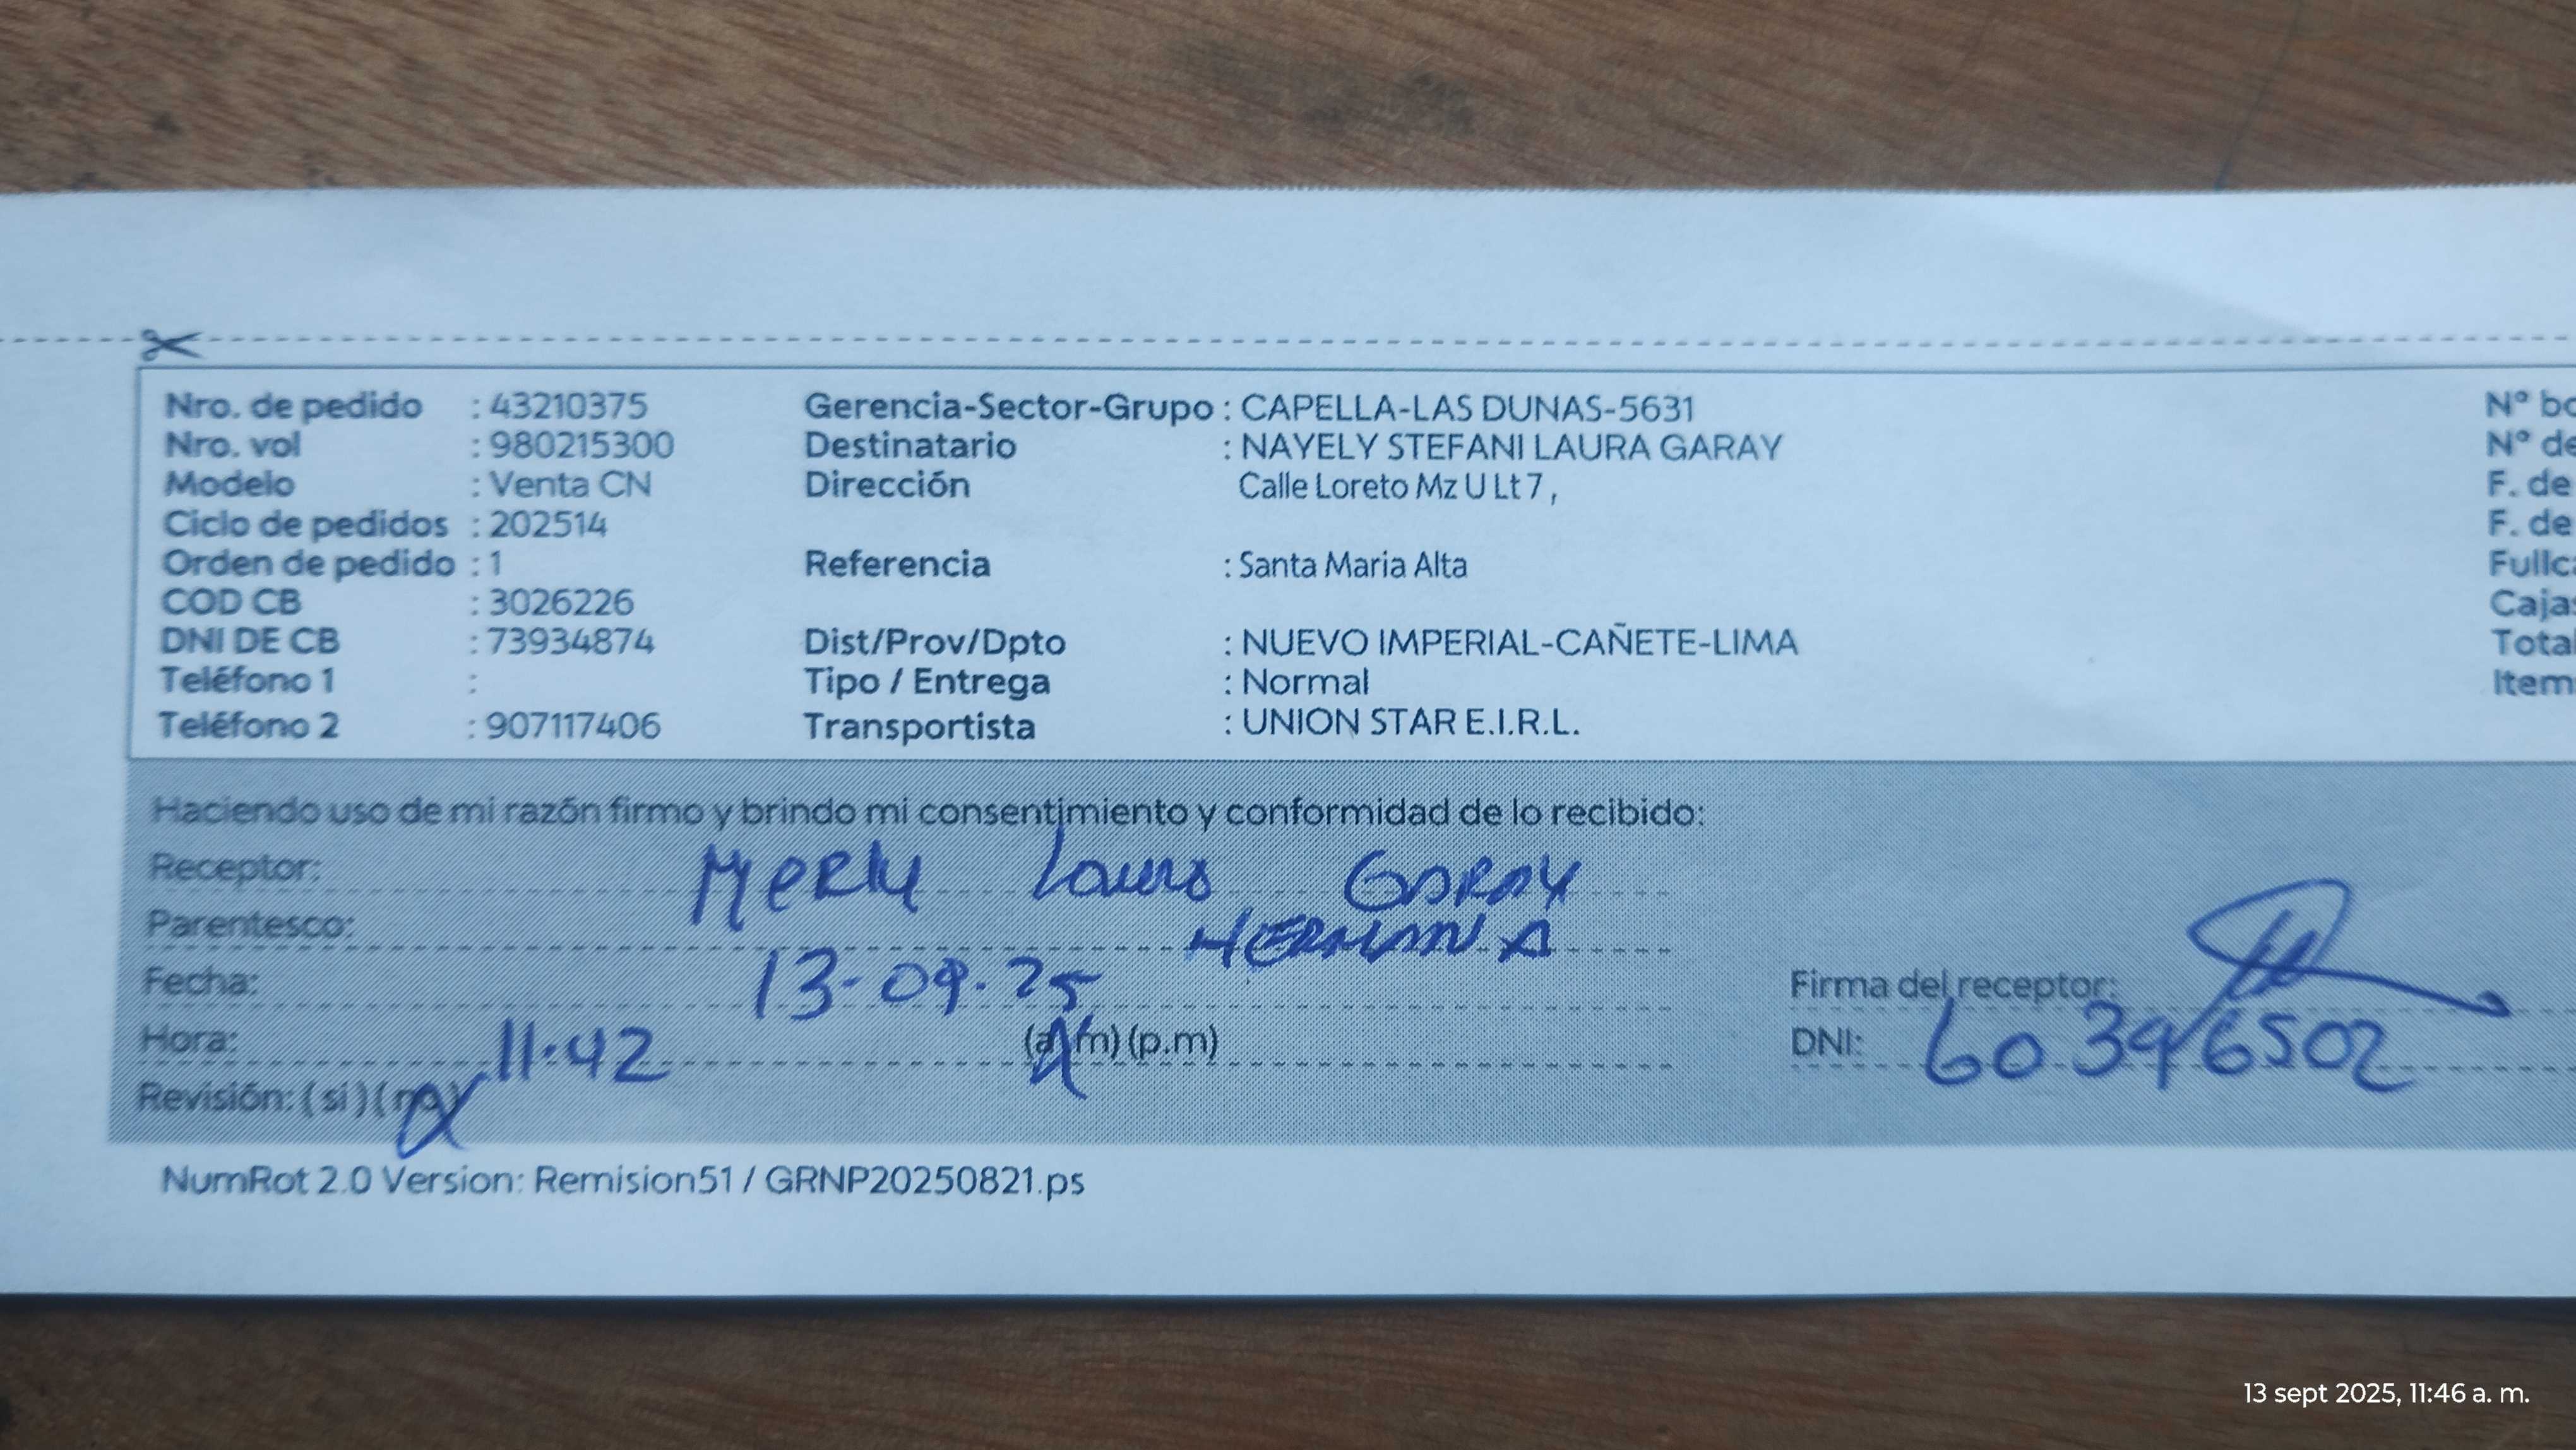 Nro. de pedido : 43210375 Gerencia-Sector-Grupo : CAPELLA-LAS DUNAS-5631
Nro. vol : 980215300 Destinatario : NAYELY STEFANI LAURA GARAY
Modelo : Venta CN Dirección Calle Loreto Mz U Lt 7 , F. de
Ciclo de pedidos : 202514 F. de
Orden de pedido : 1 Referencia : Santa Maria Alta
COD CB : 3026226
DNI DE CB : 73934874 Dist/Prov/Dpto : NUEVO IMPERIAL-CAÑETE-LIMA
Teléfono 1 : Tipo / Entrega : Normal
Teléfono 2 : 907117406 Transportista : UNION STAR E.I.R.L.
Haciendo uso de mi razón firmo y brindo mi consentimiento y conformidad de lo recibido:
Receptor: Merly Laura GARAY
Parentesco: HERMANA
Fecha: 13-09-25 Firma del receptor:
Hora: 11:42 (a.m) (p.m) DNI: 60396502
Revisión: ( si ) ( no )
NumRot 2.0 Version: Remision51 / GRNP20250821.ps
13 sept 2025, 11:46 a. m.